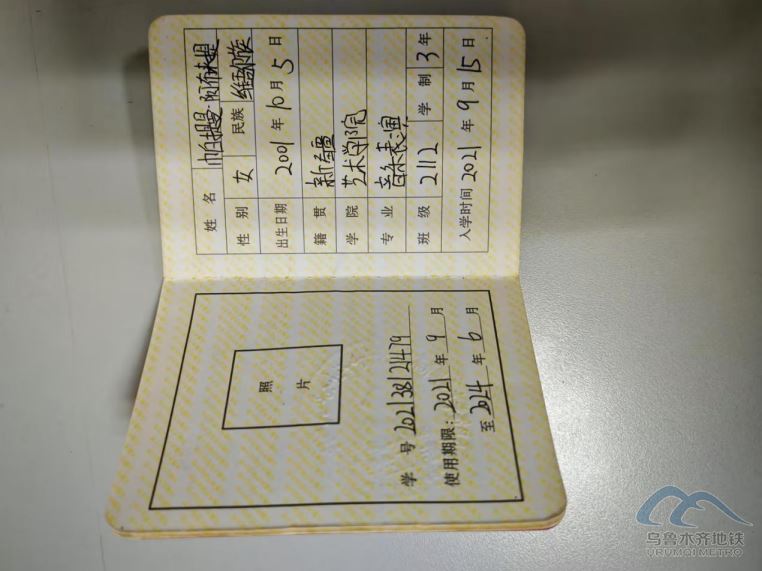 姓 名
性 别 女 民族 维吾尔族
出生日期 2001 年 10 月 5 日
籍 贯 新疆
学 院 艺术学院
专 业 音乐表演
班 级 2112 学 制 3 年
入学时间 2021 年 9 月 15 日
照
片
学 号 202138121479
使用期限: 2021 年 9 月
至 2024 年 6 月
乌鲁木齐地铁
URUMQI METRO